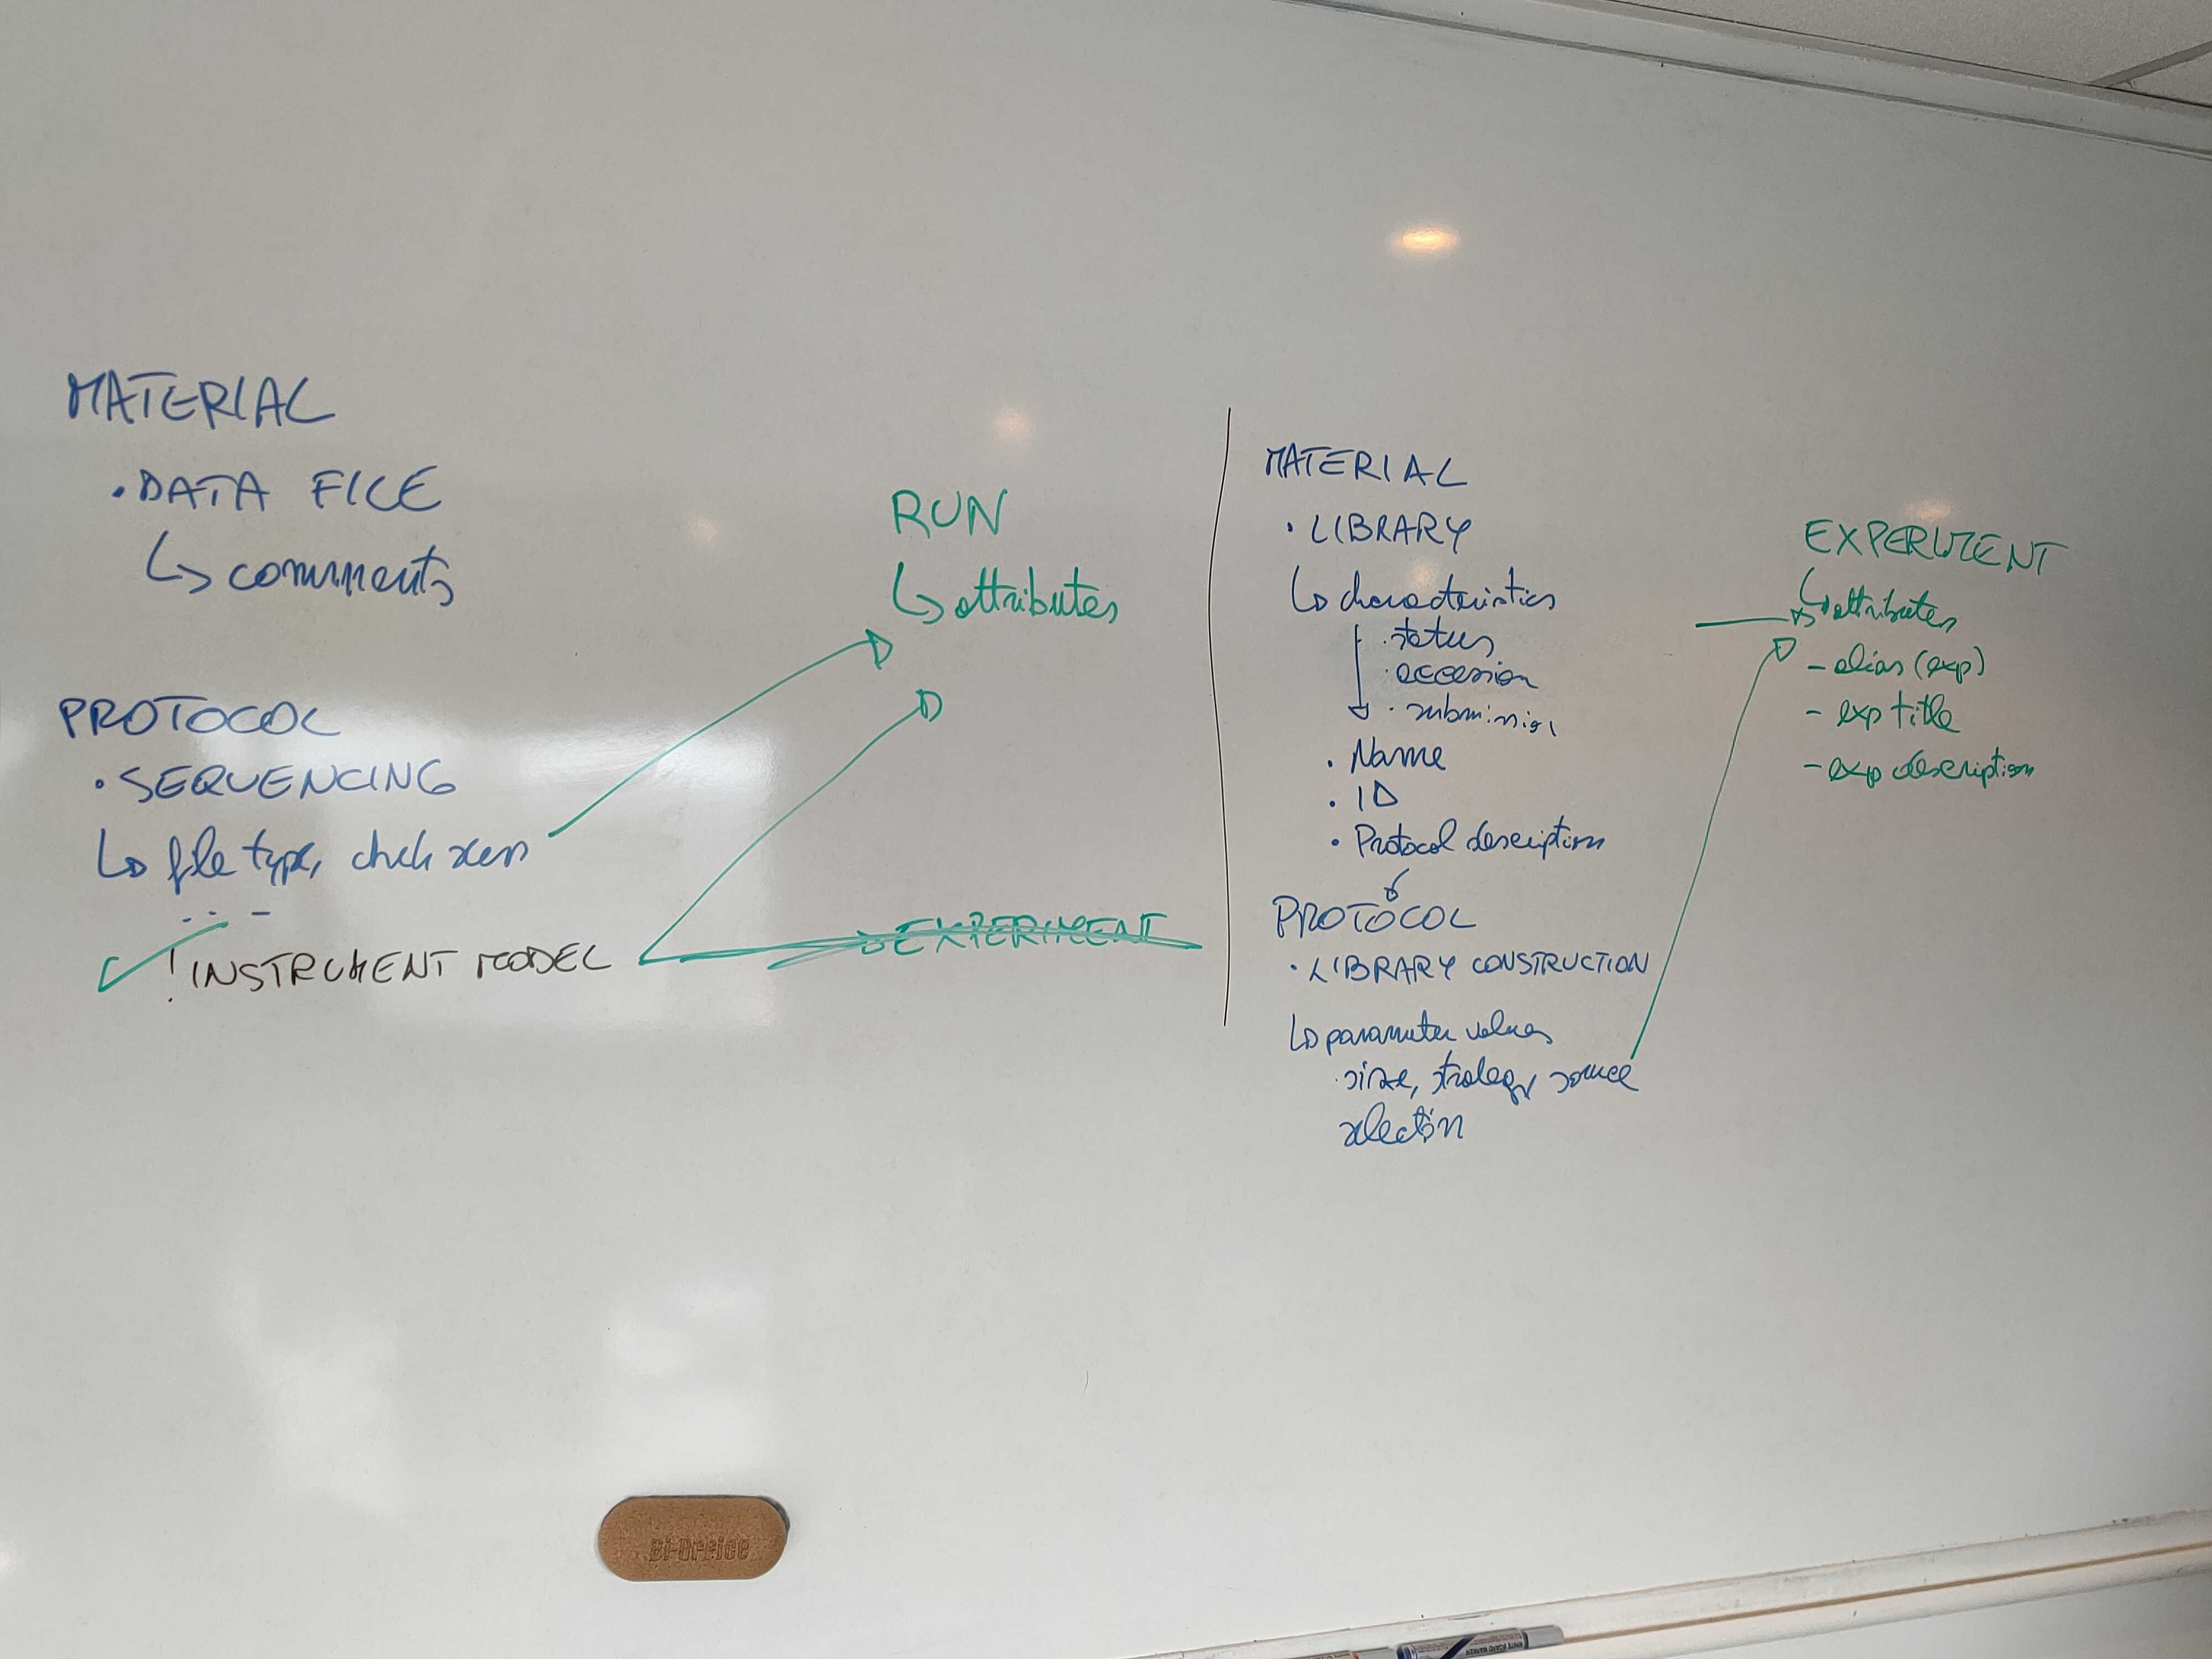 MATERIAL
• DATA FILE
↳ comments
PROTOCOL
• SEQUENCING
↳ file type, check sum
. . –
! INSTRUMENT MODEL
RUN
↳ attributes
EXPERIMENT
MATERIAL
• LIBRARY
↳ characteristics
• status
• accession
• submission
• Name
• ID
• Protocol description
PROTOCOL
• LIBRARY CONSTRUCTION
↳ parameter values
• size, strategy, source
selection
EXPERIMENT
↳ attributes
- alias (exp)
- exp title
- exp description
Bi-Office
WHITE BOARD MARKER